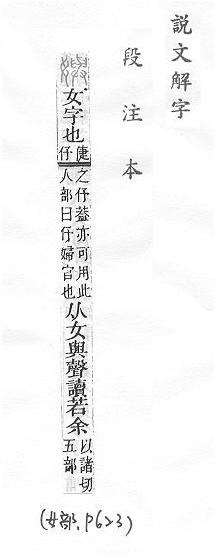 說文解字
段注本
嬩 女字也倢伃之伃蓋亦可用此人部曰伃婦官也从女與聲讀若余以諸切五部
(女部.P623)